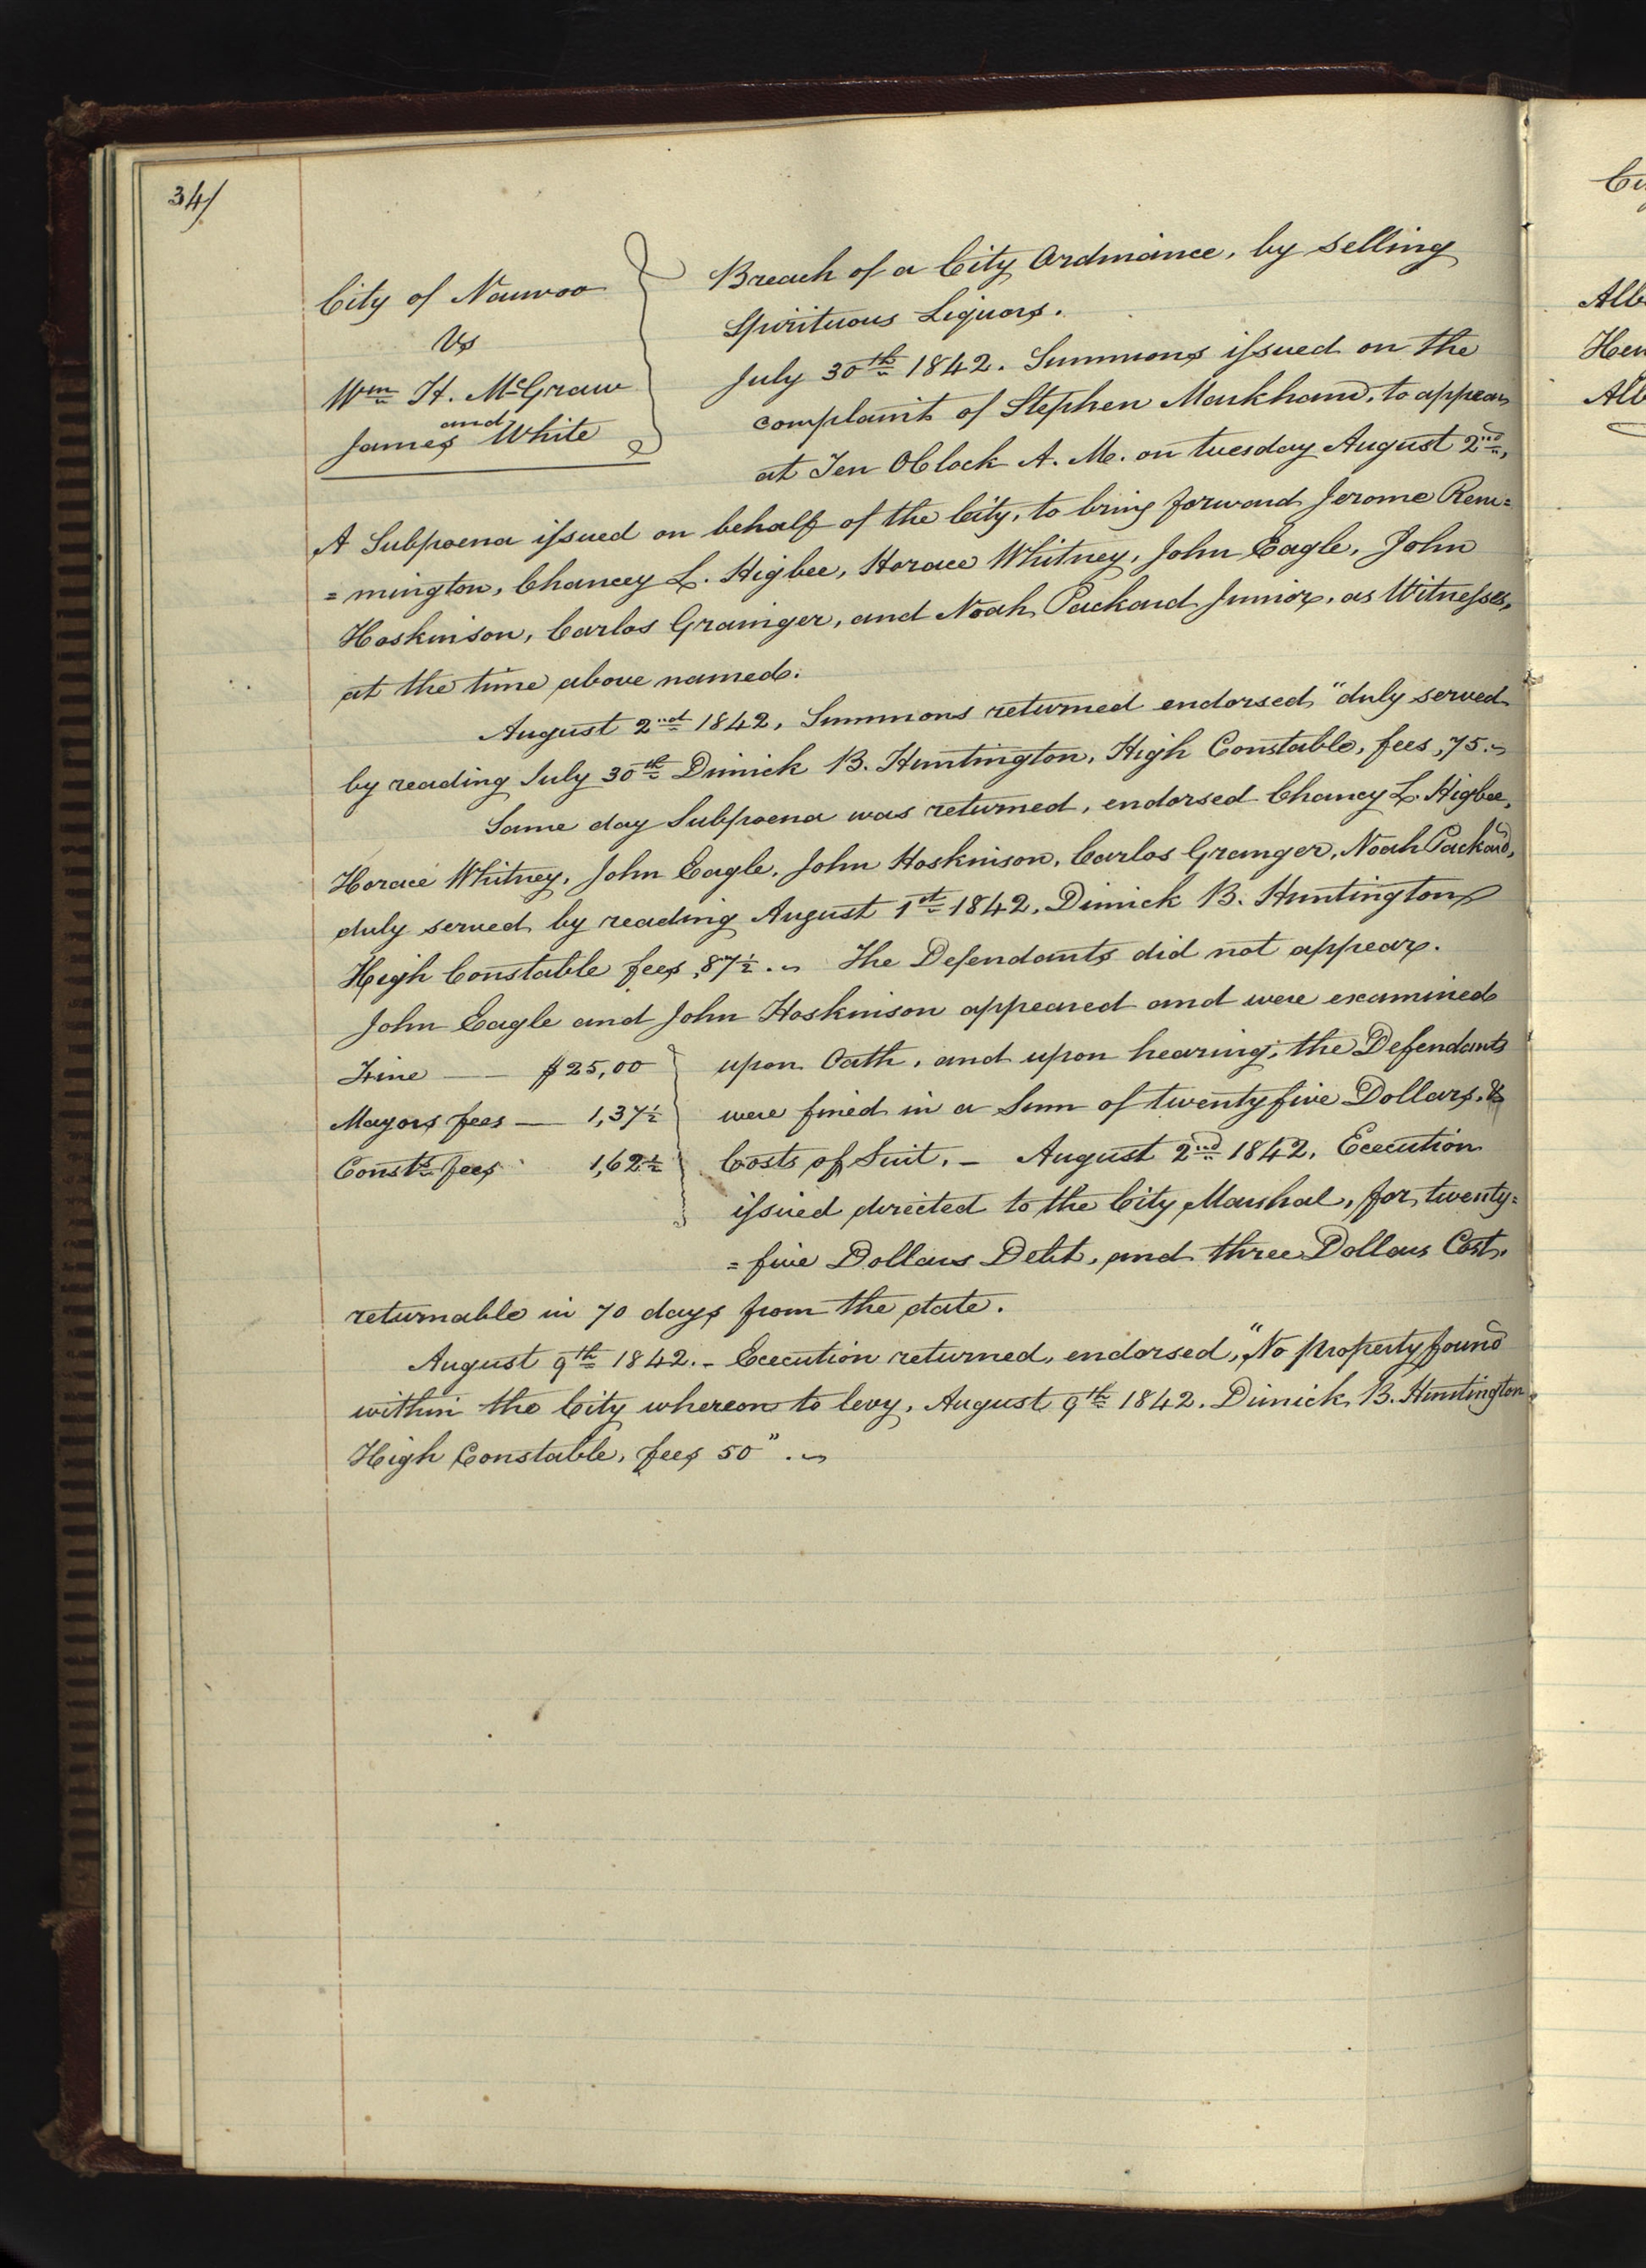 34/
City of Nauvoo
Vs
Wm H. McGraw
and
James White
Breach of a City Ordinance, by selling
Spirituous Liquors.
July 30th 1842. Summons issued on the
complaint of Stephen Markham, to appear
at Ten OClock A. M. on tuesday August 2nd,
A Subpoena issued on behalf of the City, to bring forward Jerome Rem=
=mington, Chancey L. Higbee, Horace Whitney, John Eagle, John
Hoskinson, Carlos Grainger, and Noah Packard Junior, as Witnesses,
at the time above named.
August 2nd 1842, Summons returned endorsed "duly served
by reading July 30th Dimick B. Huntington, High Constable, fees ,75.
Same day Subpoena was returned, endorsed Chancy L. Higbee,
Horace Whitney, John Eagle, John Hoskinson, Carlos Granger, Noah Packard,
duly served by reading August 1st 1842, Dimick B. Huntington
High Constable fees ,87½. The Defendants did not appear.
John Eagle and John Hoskinson appeared and were examined
upon Oath, and upon hearing, the Defendants
were fined in a Sum of twenty five Dollars, &
Costs of Suit. – August 2nd 1842, Execution
issued directed to the City Marshal, for twenty=
=five Dollars Debt, and three Dollars Cost,
Fine — $25,00
Mayors fees — 1,37½
Consts fees 1,62½
returnable in 70 days from the date.
August 9th 1842. – Execution returned, endorsed, "No property found
within the City whereon to levy, August 9th 1842. Dimick B. Huntington
High Constable, fees 50".
Ci
Alb
Hen
Alb